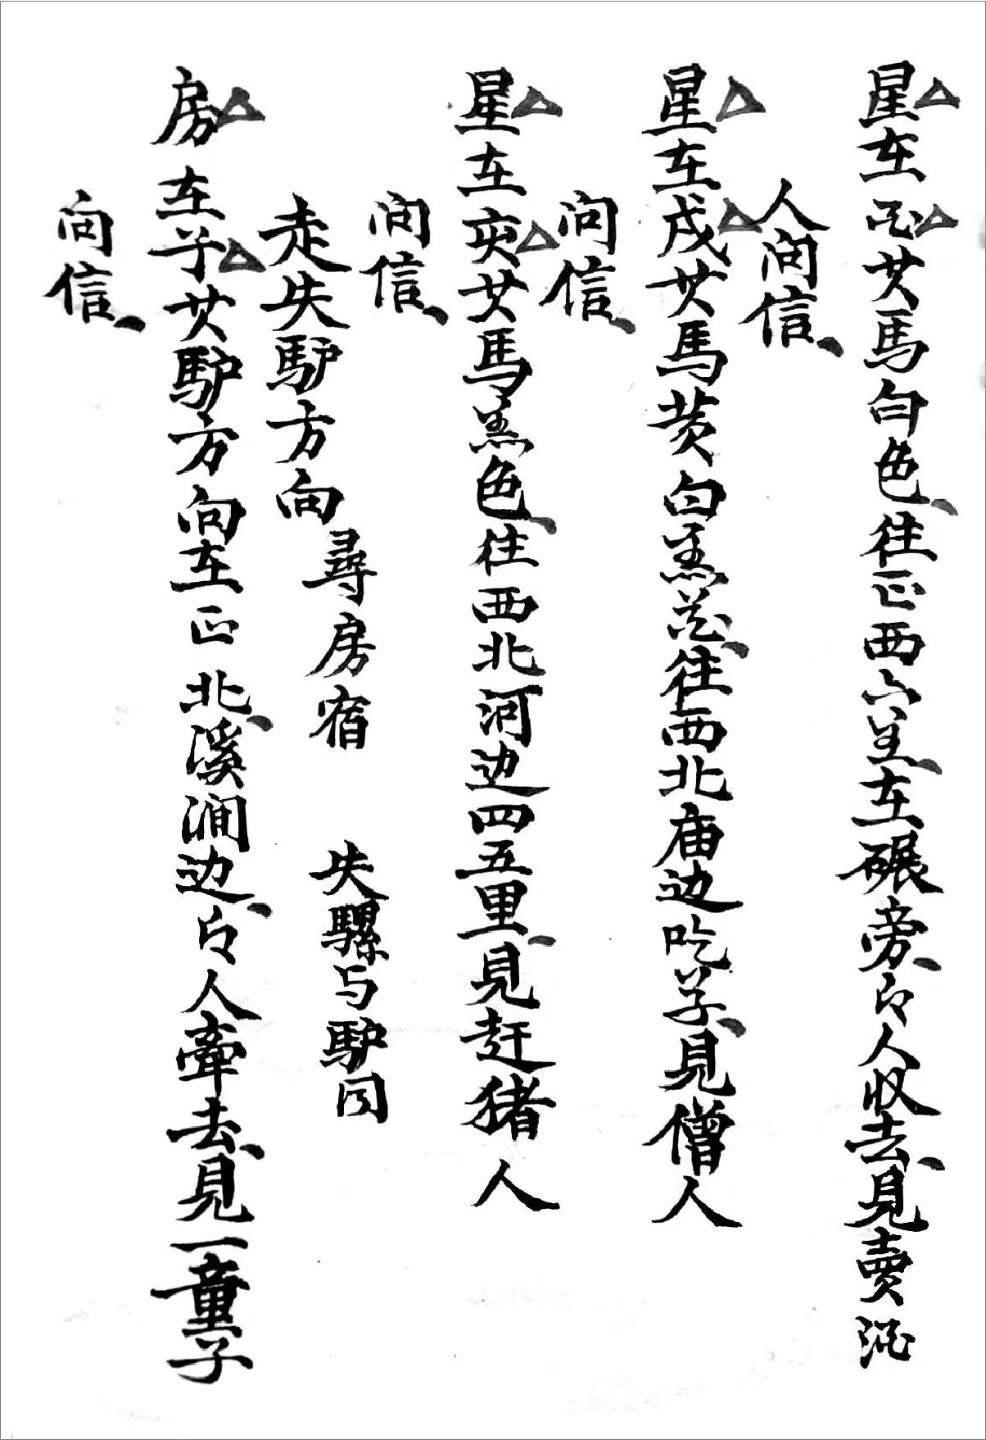 星在酉其馬白色、往正西六里、在碾旁、人收去、見賣酒
人问信、
星在戌其馬黄白黑花、往西北庙边吃草、見僧人
问信、
星在亥其馬黑色、往西北河边四五里、見赶猪人
问信、
走失驴方向 尋房宿 失騾与驴同
房在子其驴方向在正北、溪澗边、人牽去、見一童子
问信、